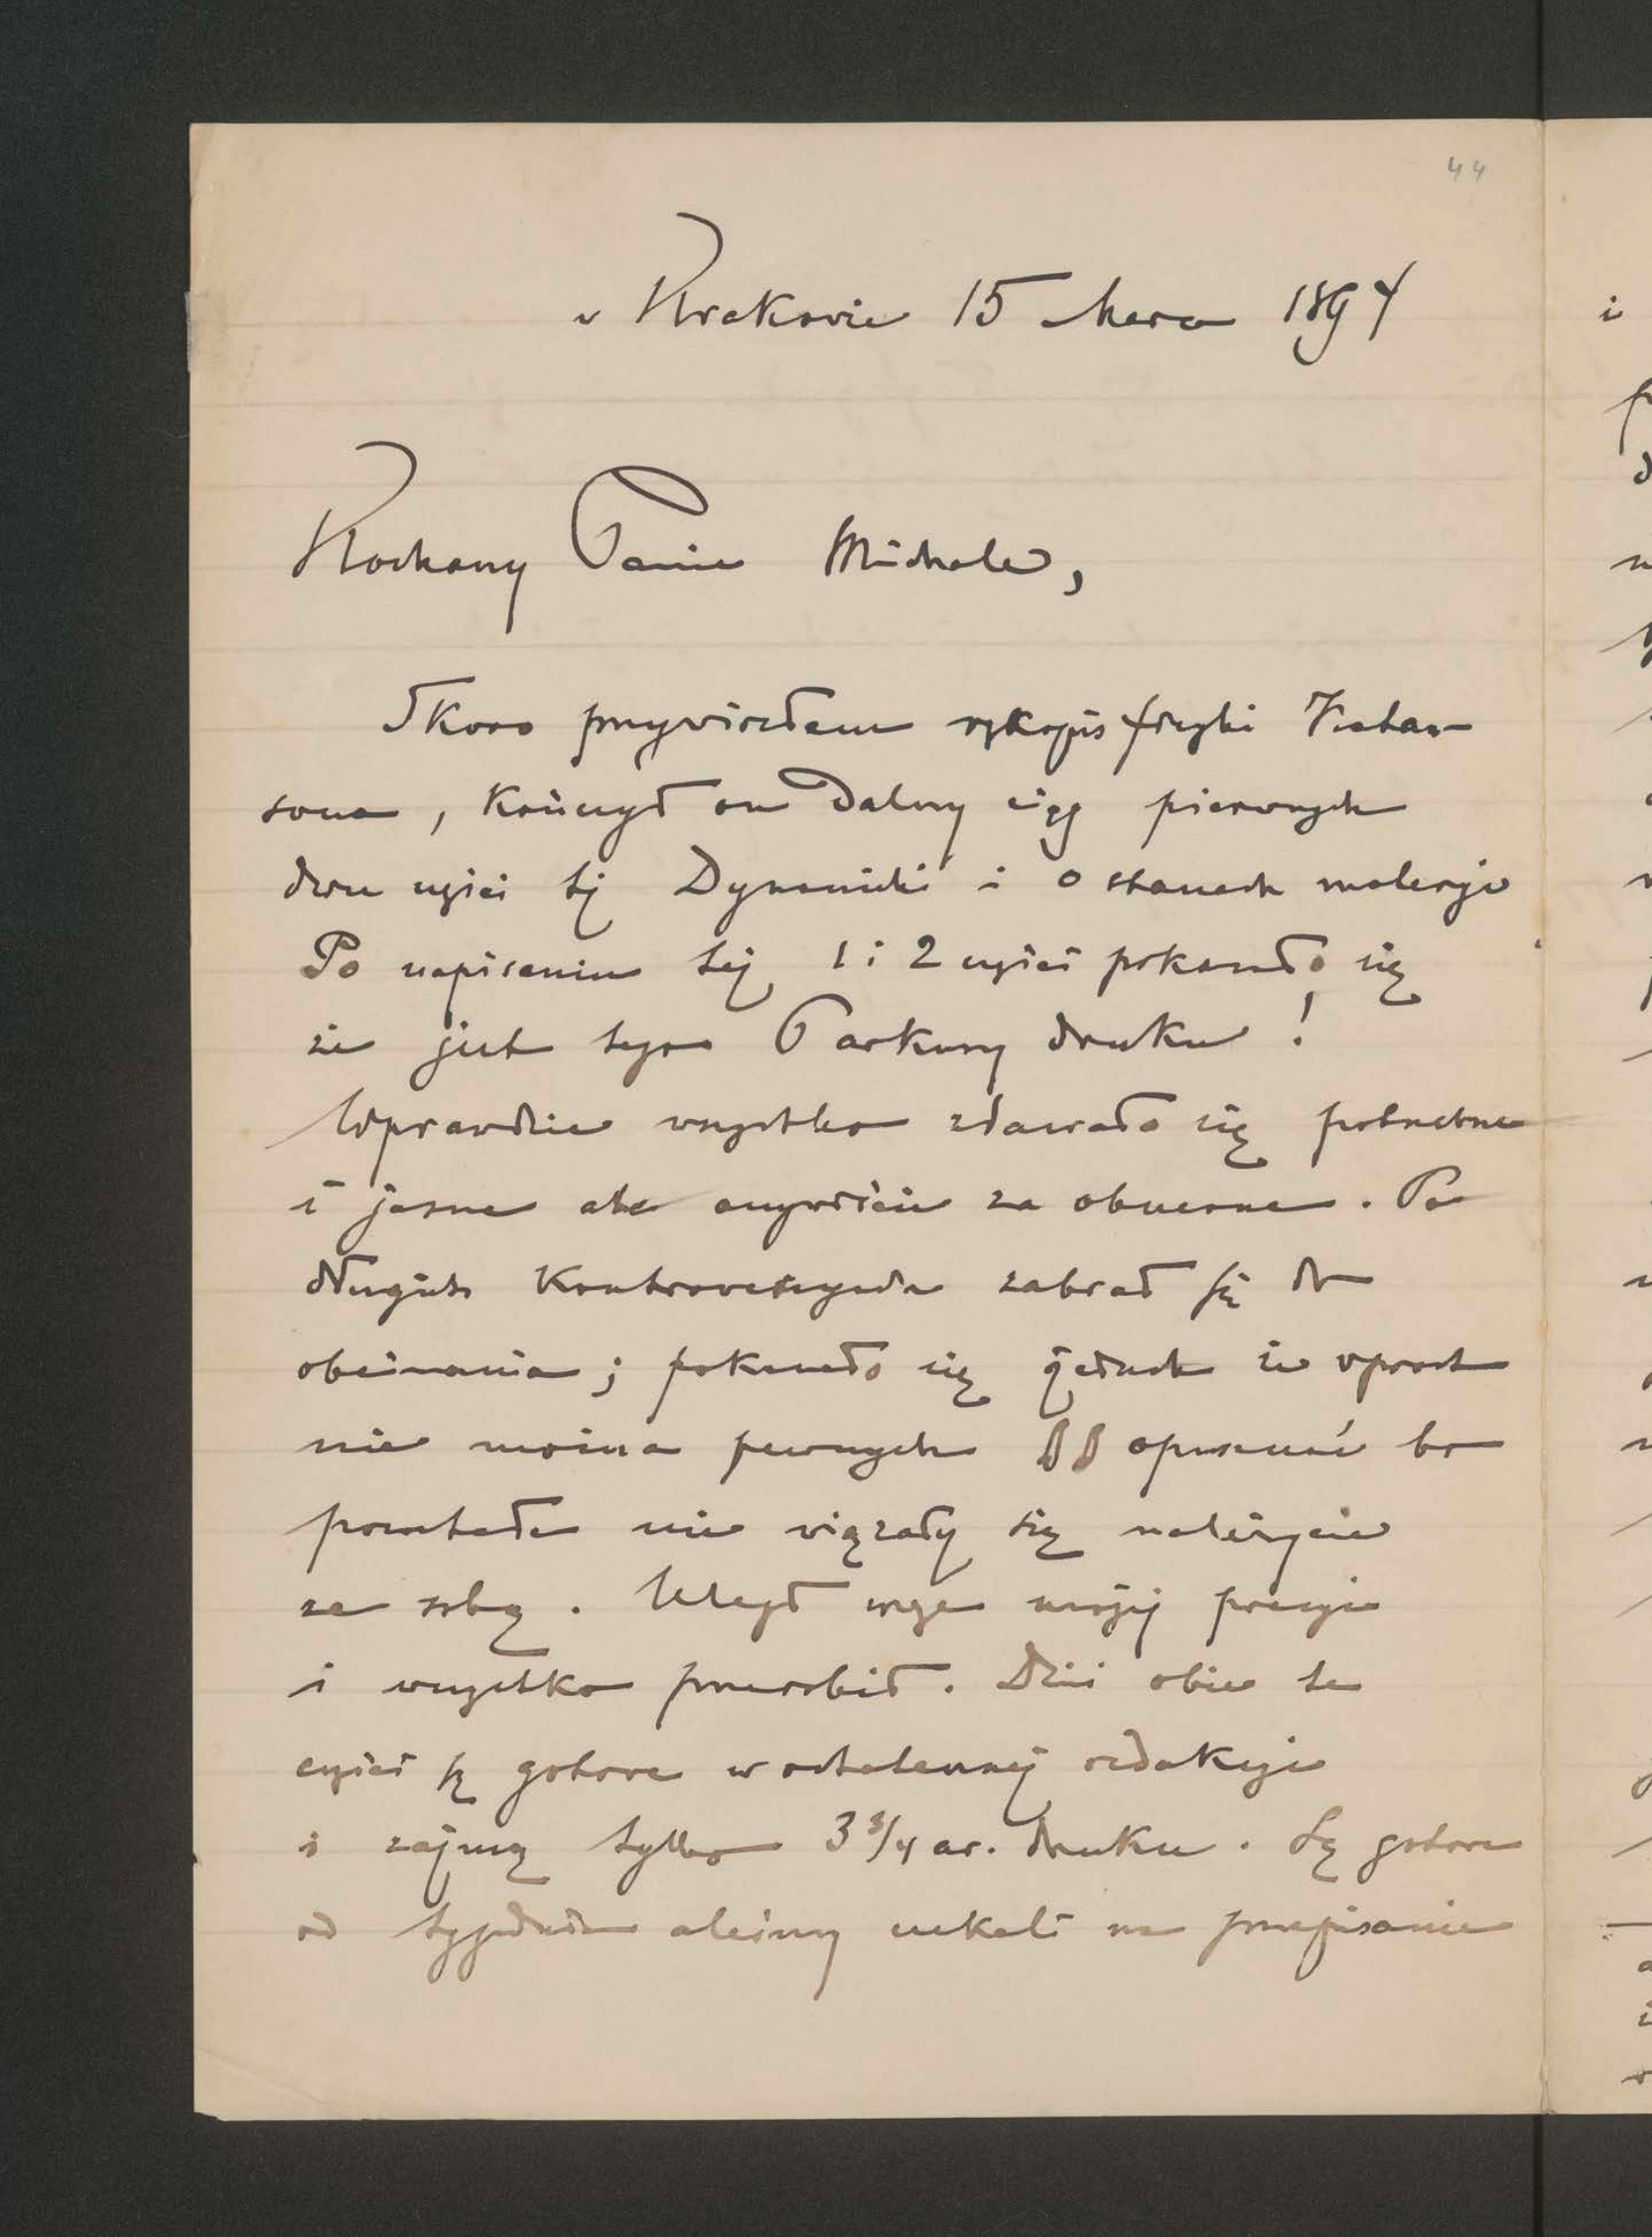 44
w Krakowie 15 Marca 1894
Kochany Panie Michale,
Skoro przywiozłem rękopis fizyki Natan-
sona, kończył on dalszy ciąg pierwszych
dwu części tj Dynamiki i o stanach materyi
Po napisaniu tej 1 i 2 części pokazało się
że jest tego 6 arkuszy druku!
Wprawdzie wszystko zdawało się potrzebne
i jasne ale oczywiście za obszerne. Po
długich kontrowersyach zabrał się do
obcinania; pokazało się jednak że wprost
nie można pewnych §§ opuszczać bo
pozostałe nie wiązały się należycie
ze sobą. Uległ mojej presyi
i wszystko przerobił. Dziś obie te
części są gotowe w ostatecznej redakcyi
i zajmą tylko 3 3/4 ar. druku. Są gotowe
od tygodnia aleśmy czekali na przepisanie